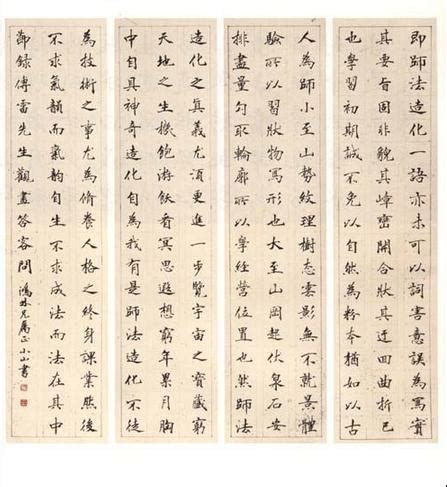 即師法造化一語亦未可以詞害意誤為寫實
其要旨固非貌其嶂巒開合狀其迂回曲折已
也學習初期誠不免以自然為粉本猶如以古
人為師小至山勢紋理樹態雲影無不就景體
驗所以習狀物寫形也大至山岡起伏泉石安
排盡量勾取輪廓所以學經營位置也然師法
造化之真義尤須更進一步覽宇宙之寶藏窮
天地之生機飽游飫看冥思遐想窮年累月胸
中自具神奇造化自為我有是師法造化不徒
為技術之事尤為脩養人格之終身課業然後
不求氣韻而氣韻自生不求成法而法在其中
節錄傅雷先生觀畫答客問 鴻林兄屬正 小山書